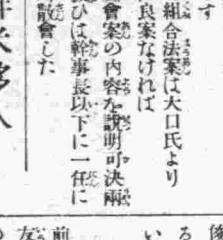 す
組合法案は大口氏より
良案なければ
會案の内容を說明可決兩
びは幹事長以下に一任に
散會した
前
友